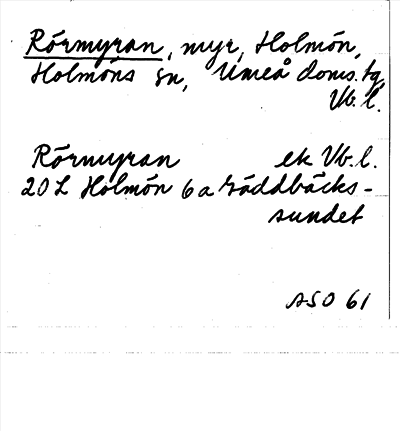 Rörmyran, myr, Holmön,
Holmöns sn, Umeå doms. tg,
Vb. l.
Rörmyran ek Vb. l.
20 L Holmön 6 a räddbäcks-
sundet
ASO 61